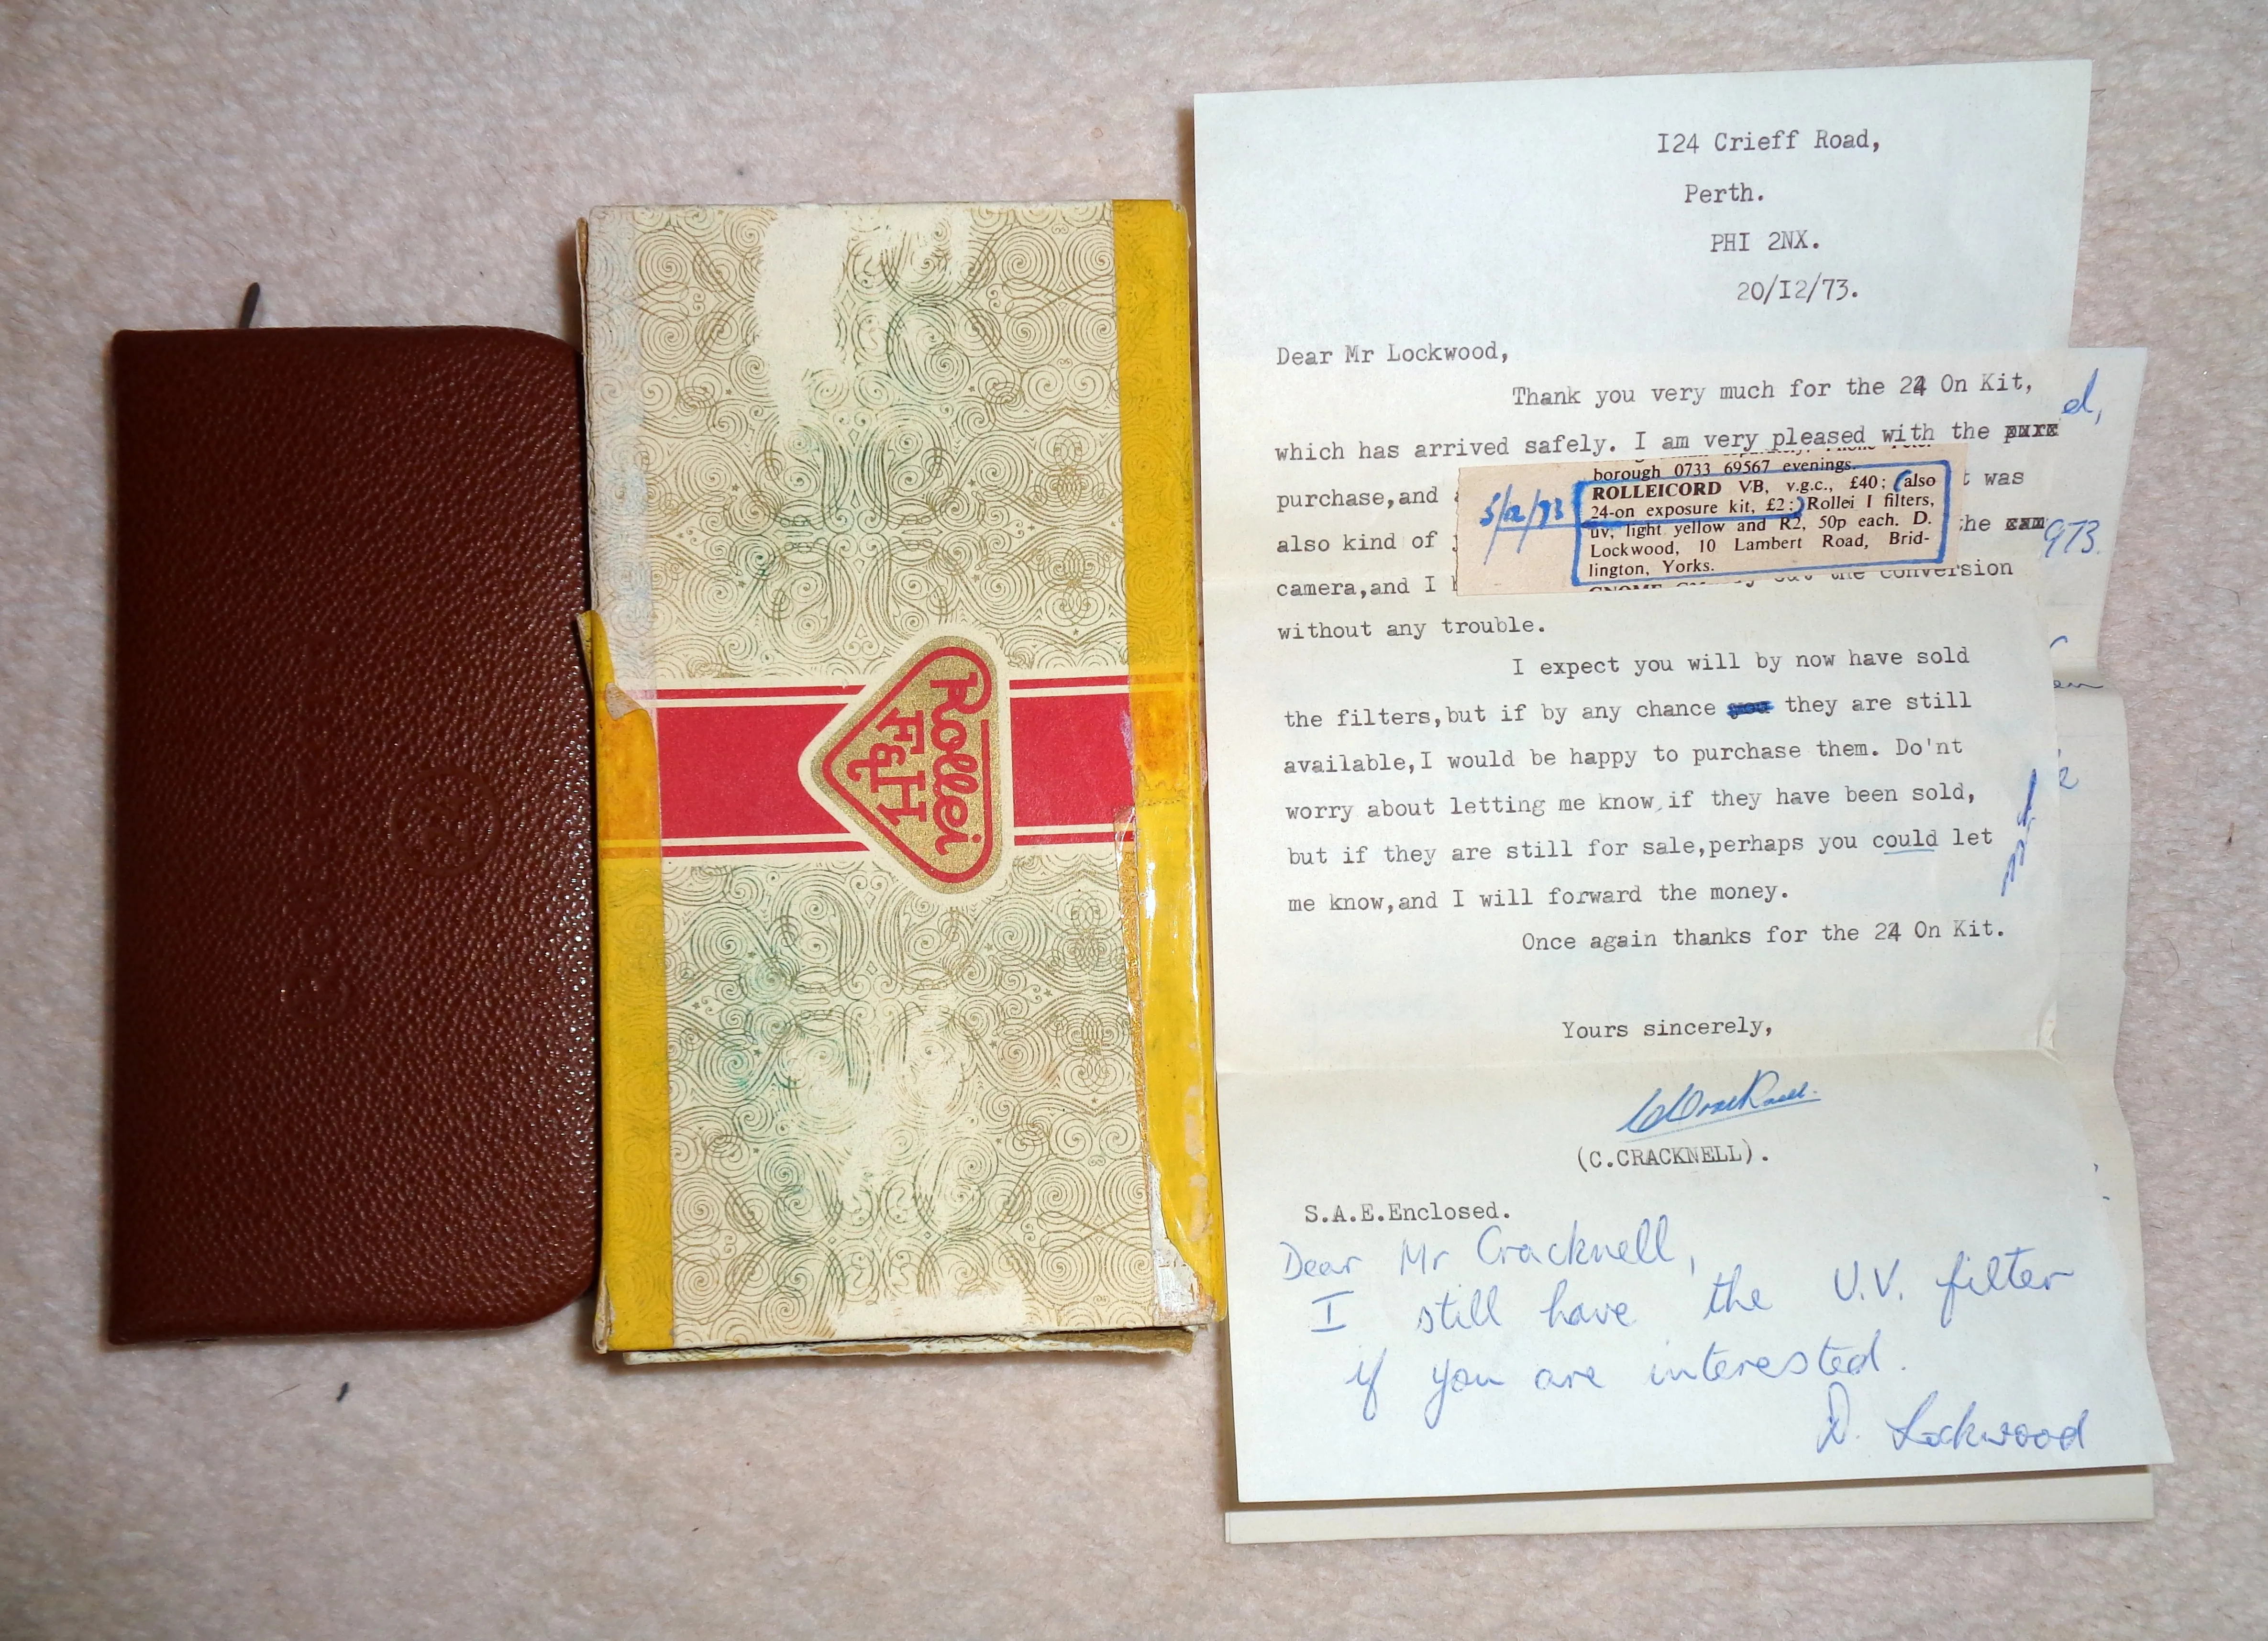 Rollei
F&H
I24 Crieff Road,
Perth.
PHI 2NX.
20/I2/73.
Dear Mr Lockwood,
Thank you very much for the 24 On Kit,
which has arrived safely. I am very pleased with the
purchase,and
t was
also kind of
he
camera,and I
the conversion
without any trouble.
I expect you will by now have sold
the filters,but if by any chance they are still
available,I would be happy to purchase them. Do'nt
worry about letting me know,if they have been sold,
but if they are still for sale,perhaps you could let
me know,and I will forward the money.
Once again thanks for the 24 On Kit.
Yours sincerely,
(C.CRACKNELL).
S.A.E.Enclosed.
Dear Mr Cracknell,
I still have the U.V. filter
if you are interested.
D. Lockwood
borough 0733 69567 evenings.
ROLLEICORD VB, v.g.c., £40; (also
24-on exposure kit, £2;) Rollei I filters,
uv, light yellow and R2, 50p each. D.
Lockwood, 10 Lambert Road, Brid-
lington, Yorks.
d,
973